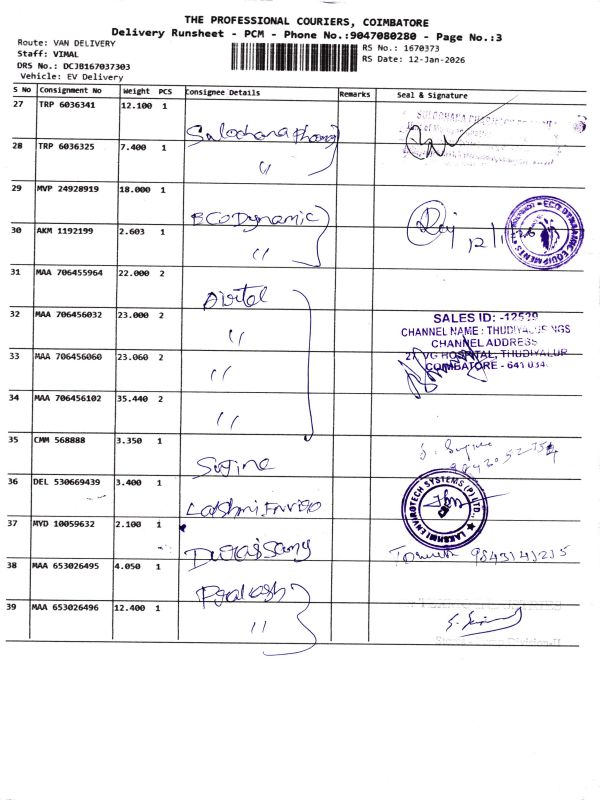 THE PROFESSIONAL COURIERS, COIMBATORE
Delivery Runsheet - PCM - Phone No.:9047080280 - Page No.:3
Route: VAN DELIVERY
Staff: VIMAL
DRS No.: DCJB167037303
Vehicle: EV Delivery
RS No.: 1670373
RS Date: 12-Jan-2026
S No Consignment No Weight PCS Consignee Details Remarks Seal & Signature
27 TRP 6036341 12.100 1 Sulochana
28 TRP 6036325 7.400 1 "
29 MVP 24928919 18.000 1 ECO Dynamic
30 AKM 1192199 2.603 1 "
ECO DYNAMIC EQUIPMENTS
31 MAA 706455964 22.000 2 Airtel
32 MAA 706456032 23.000 2 "
33 MAA 706456060 23.060 2 "
34 MAA 706456102 35.440 2 "
SALES ID: -12529
CHANNEL NAME : THUDIYALUR NGS
CHANNEL ADDRESS
VG HOSPITAL, THUDIYALUR
COIMBATORE - 641034
35 CMM 568888 3.350 1
36 DEL 530669439 3.400 1 Lakshmi Enviro
LAKSHMI ENVIROTECH SYSTEMS (P) LTD.,
37 MYD 10059632 2.100 1 Duraisamy
38 MAA 653026495 4.050 1 Prakash
39 MAA 653026496 12.400 1 "